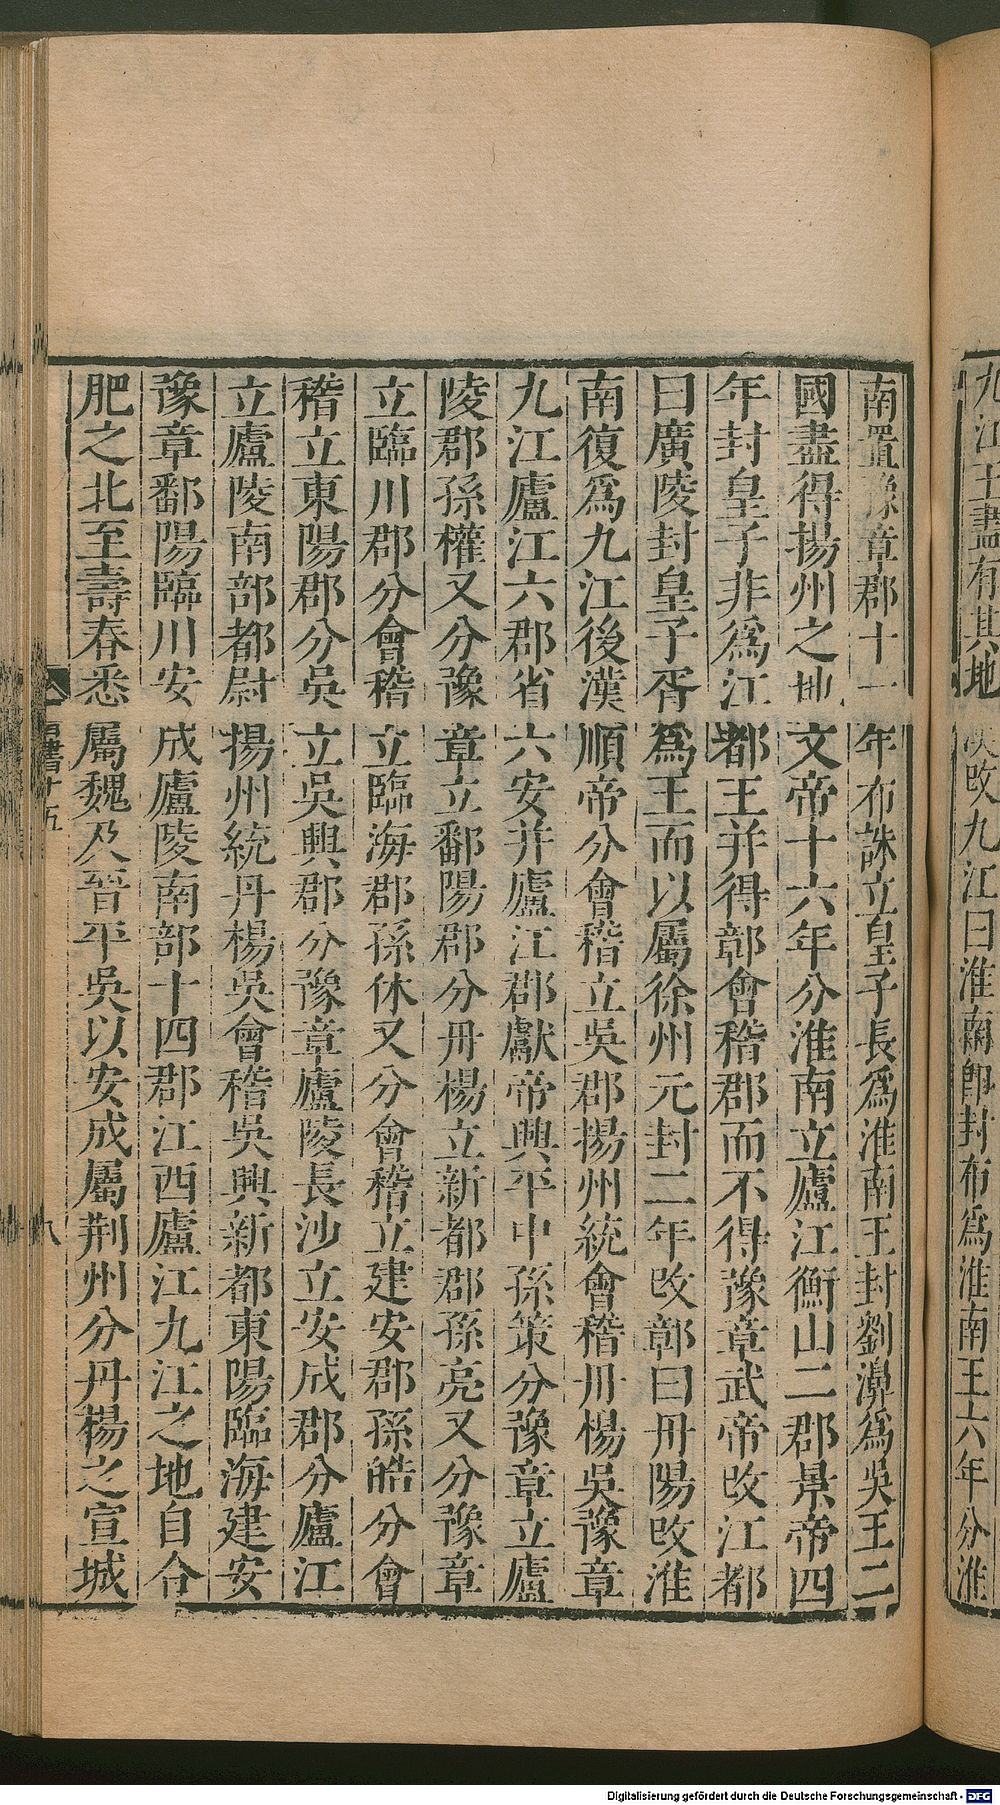 九江王盡有其地漢改九江曰淮南即封布為淮南王六年分淮
南置豫章郡十一年布誅立皇子長為淮南王封劉濞為吳王二
國盡得揚州之地文帝十六年分淮南立廬江衡山二郡景帝四
年封皇子非為江都王并得鄣會稽郡而不得豫章武帝改江都
曰廣陵封皇子胥為王而以屬徐州元封二年改鄣曰丹陽改淮
南復爲九江後漢順帝分會稽立吳郡揚州統會稽丹楊吳豫章
九江廬江六郡省六安并廬江郡獻帝興平中孫策分豫章立廬
陵郡孫權又分豫章立鄱陽郡分丹楊立新都郡孫亮又分豫章
立臨川郡分會稽立臨海郡孫休又分會稽立建安郡孫皓分會
稽立東陽郡分吳立吳興郡分豫章廬陵長沙立安成郡分廬江
立廬陵南部都尉揚州統丹楊吳會稽吳興新都東陽臨海建安
豫章鄱陽臨川安成廬陵南部十四郡江西廬江九江之地自合
肥之北至壽春悉屬魏及晉平吳以安成屬荆州分丹楊之宣城
書十五
八
Digitalisierung gefördert durch die Deutsche Forschungsgemeinschaft - DFG